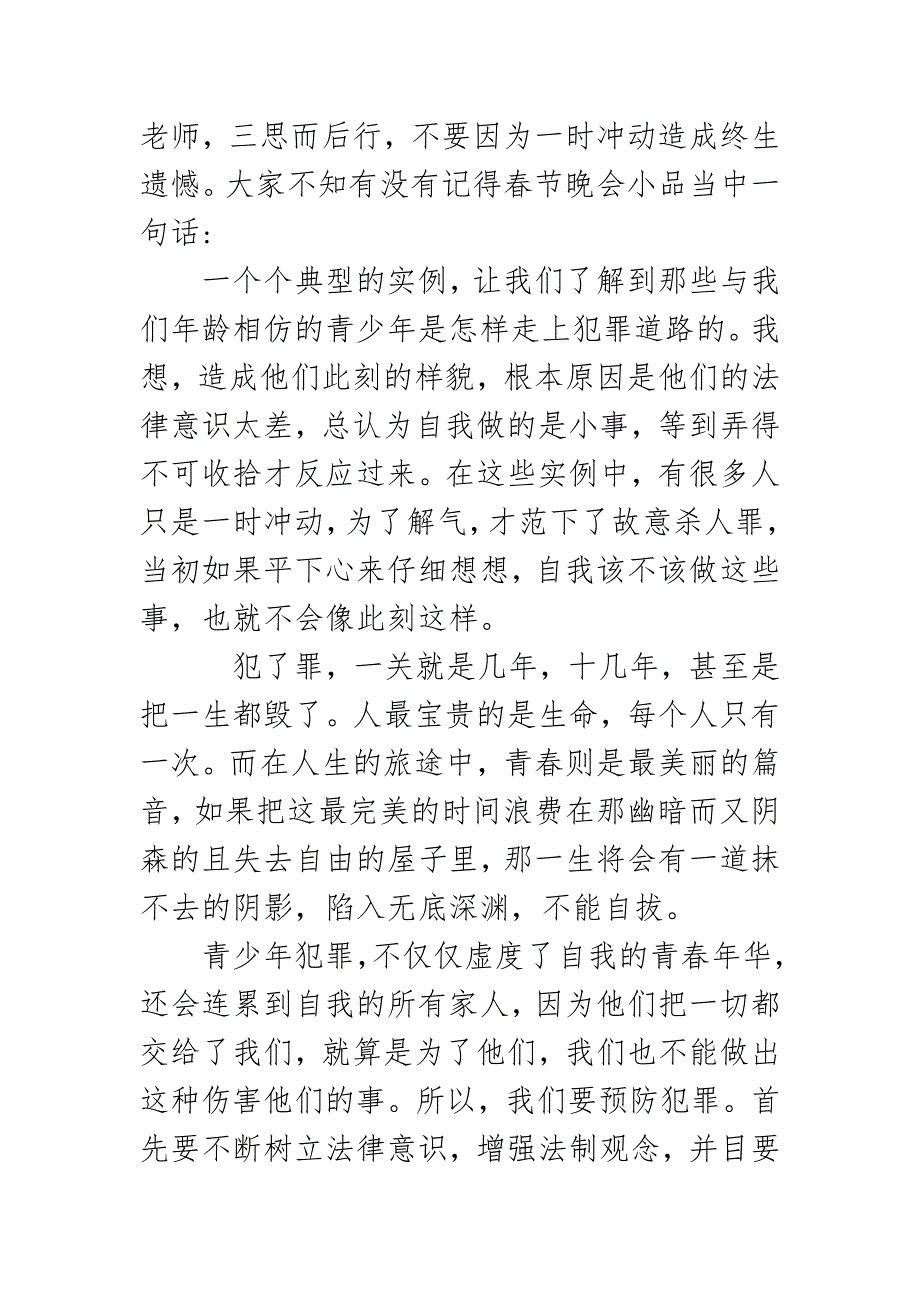 老师，三思而后行，不要因为一时冲动造成终生
遗憾。大家不知有没有记得春节晚会小品当中一
句话：
一个个典型的实例，让我们了解到那些与我
们年龄相仿的青少年是怎样走上犯罪道路的。我
想，造成他们此刻的样貌，根本原因是他们的法
律意识太差，总认为自我做的是小事，等到弄得
不可收拾才反应过来。在这些实例中，有很多人
只是一时冲动，为了解气，才范下了故意杀人罪，
当初如果平下心来仔细想想，自我该不该做这些
事，也就不会像此刻这样。
犯了罪，一关就是几年，十几年，甚至是
把一生都毁了。人最宝贵的是生命，每个人只有
一次。而在人生的旅途中，青春则是最美丽的篇
音，如果把这最完美的时间浪费在那幽暗而又阴
森的且失去自由的屋子里，那一生将会有一道抹
不去的阴影，陷入无底深渊，不能自拔。
青少年犯罪，不仅仅虚度了自我的青春年华，
还会连累到自我的所有家人，因为他们把一切都
交给了我们，就算是为了他们，我们也不能做出
这种伤害他们的事。所以，我们要预防犯罪。首
先要不断树立法律意识，增强法制观念，并目要